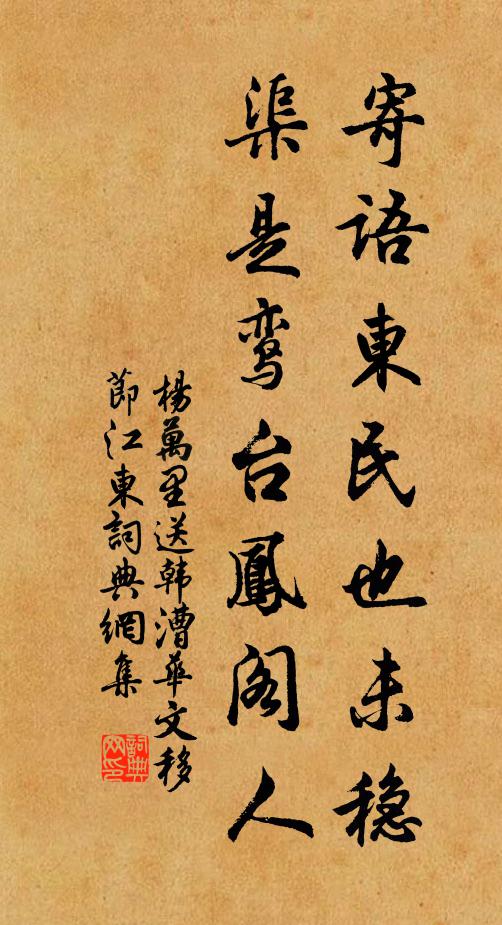 寄语東民也未稳
渠是鸾台鳳阁人
楊萬里送韩漕華文移
節江東詞典網集
詞典
网印